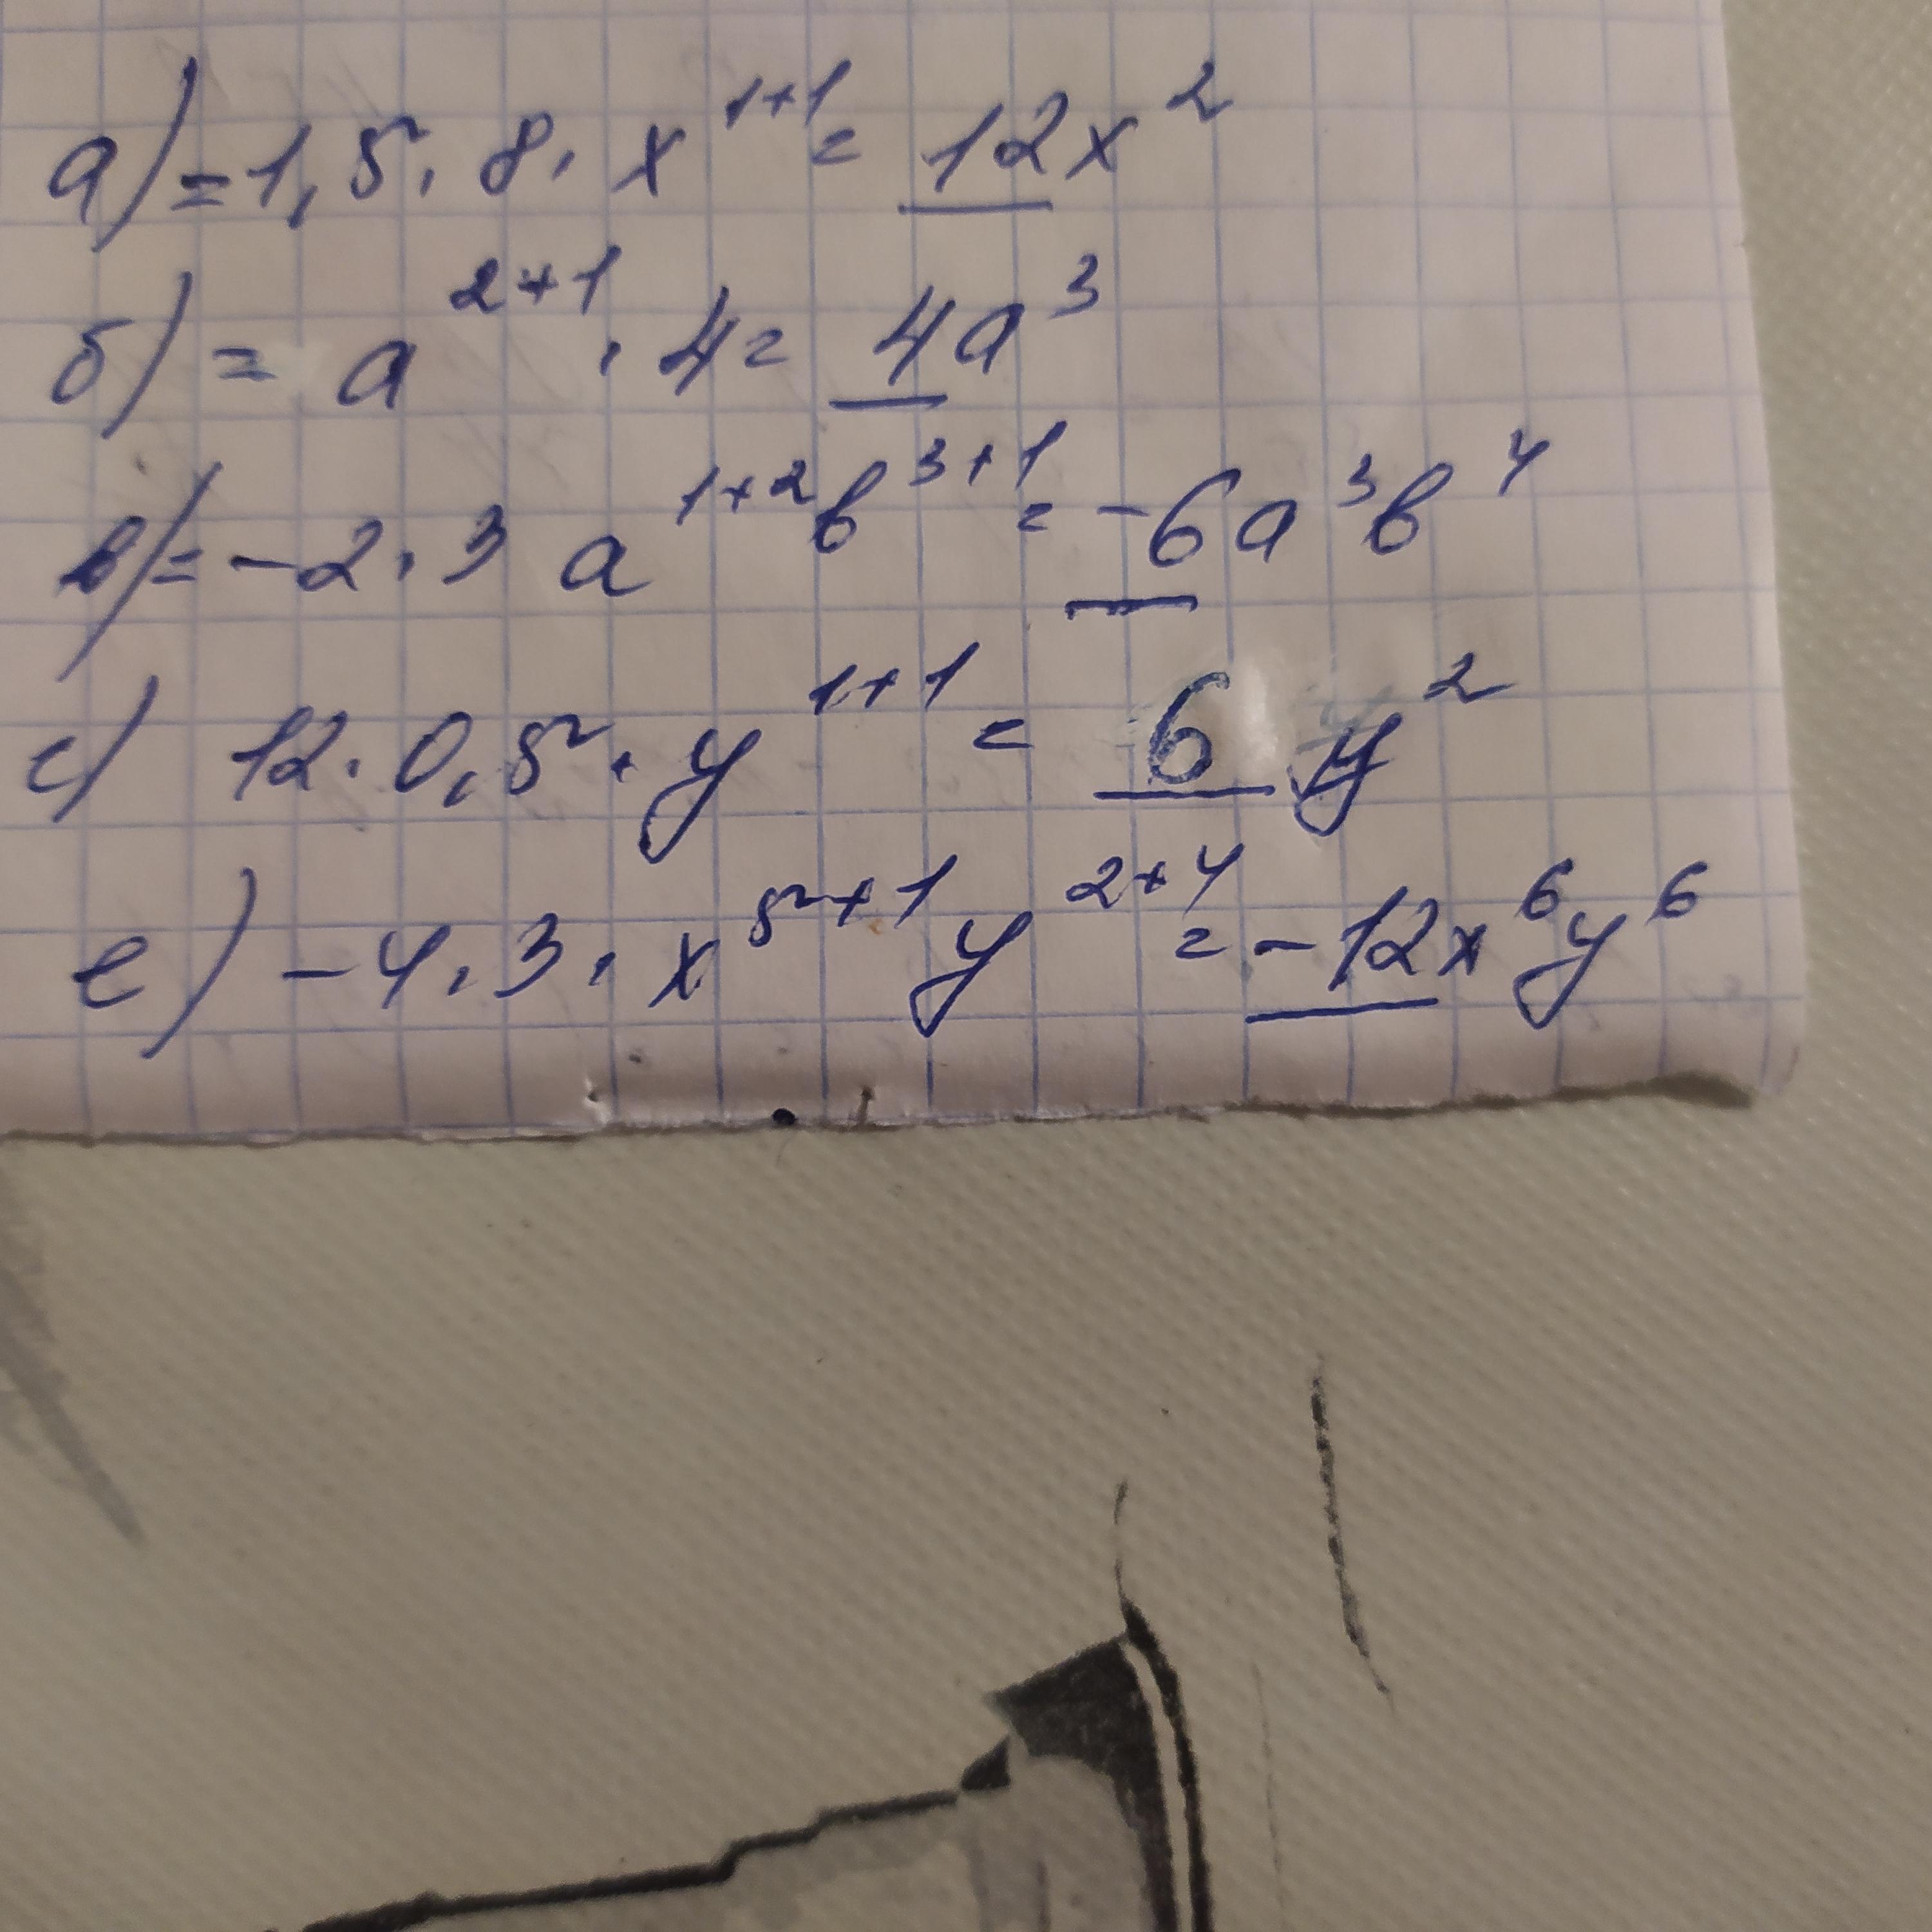 а) = 1,5 · 8 · x¹⁺¹ = 12x²
б) = a²⁺¹ · 4 = 4a³
в) = -2 · 3 a¹⁺²b³⁺¹ = -6a³b⁴
с) 12 · 0,5 · y¹⁺¹ = 6y²
е) -4 · 3 · x⁵⁺¹y²⁺⁴ = -12x⁶y⁶